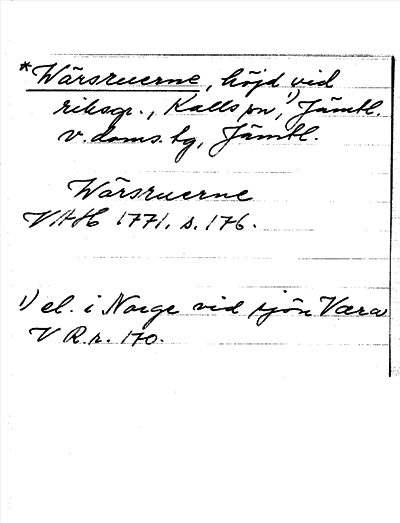 *Wärsruerne, höjd vid
riksgr., Kalls sn, ¹) Jämtl.
v. doms. tg, Jämtl.
Wärsruerne
VAH 1771. s. 176.
¹) el. i Norge vid sjön Væra
V R.r. 170.